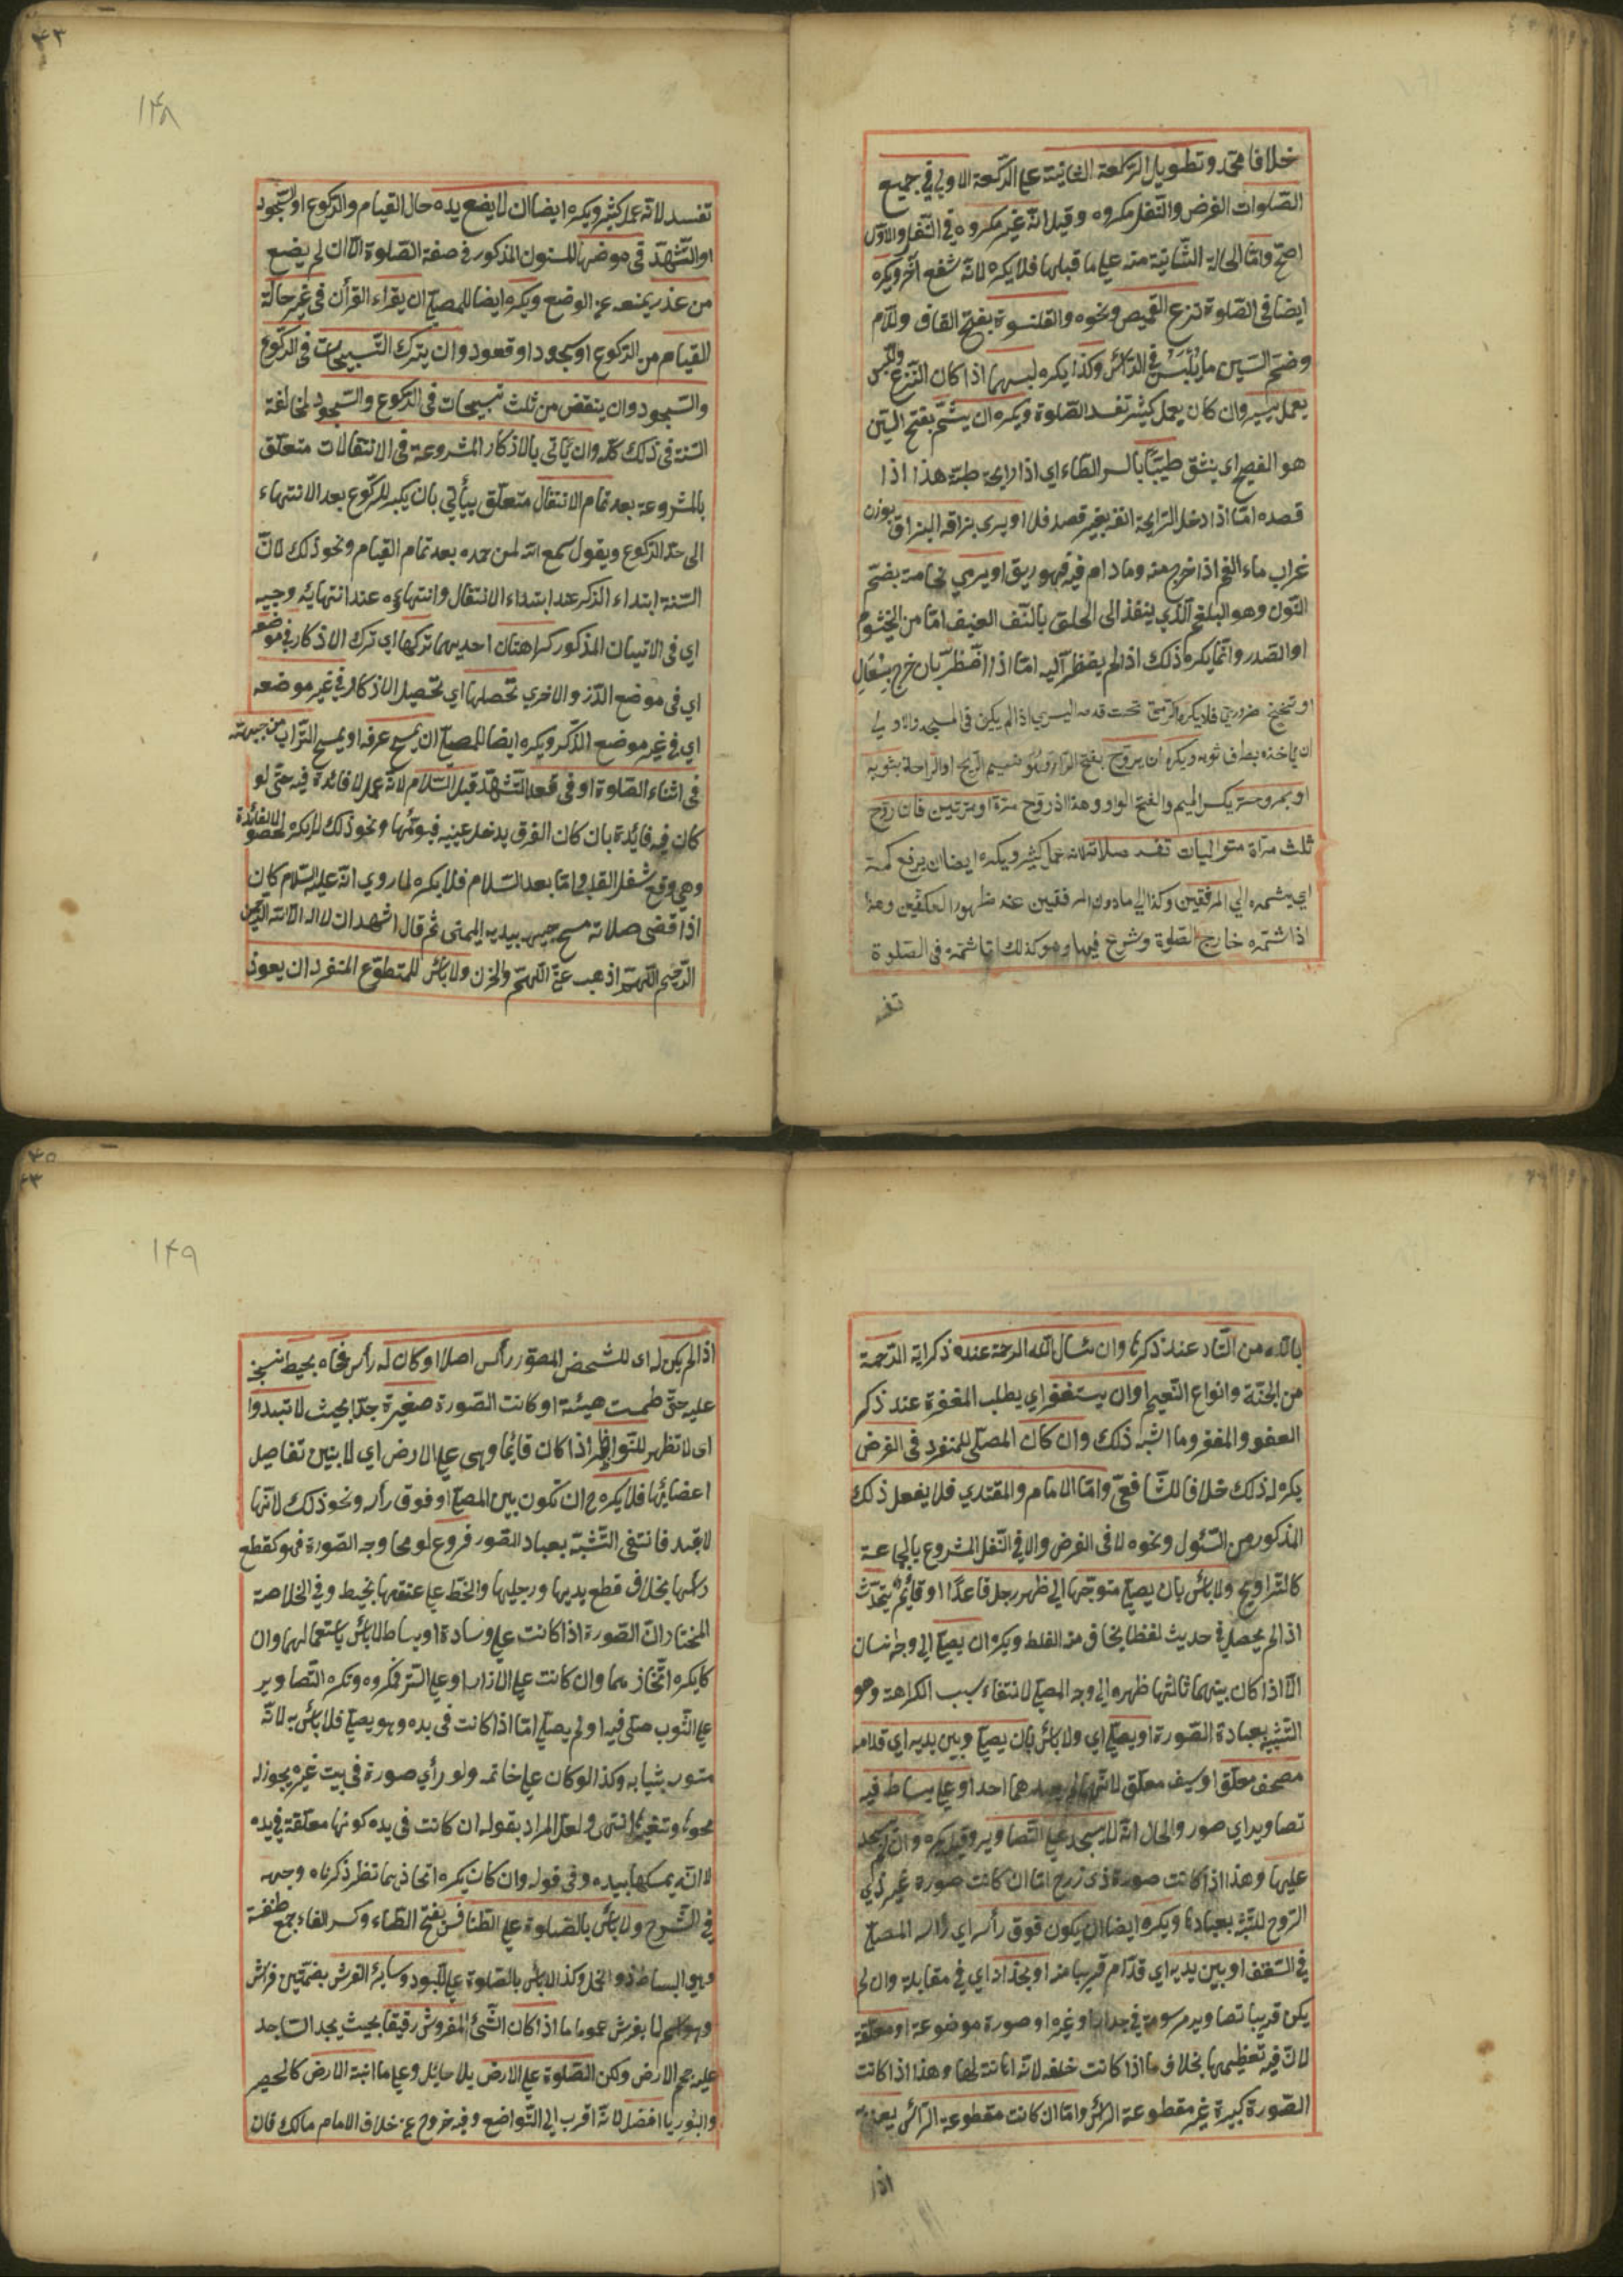 خلافا لمحمد وتطويل الركعة الثانية علي الركعة الاولي في جميع
الصلوات الفرض والنفل مكروه وقيل انه غير مكروه في النفل والاول
اصح واما اطالة الثالثة منه علي ما قبلها فلا يكره لانه شفع آخر ويكره
ايضا في الصلوة نزع القميص ونحوه والقلنسوة بفتح القاف واللام
وضم السين ما يلبس في الرأس وكذا يكره لبسهما اذا كان النزع واللبس
بعمل يسير وان كان بعمل كثير تفسد الصلوة ويكره ان يشم بفتح الشين
هو الفصيح اي ينشق طيبا بكسر الطاء اي اذا رايحة طيبة هذا اذا
قصده اما اذا دخل الرايحة انفه بغير قصد فلا او يرى بزاقه البزاق بوزن
غراب ماء الفم اذا خرج منه وما دام فيه فهو ريق او يرمي نخامة بضم
النون وهو البلغم الذي ينفذ الى الحلق بالنفس العنيف اما من الخيشوم
او الصدر وانما يكره ذلك اذا لم يضطر اليه اما اذا اضطر بان خرج بسعال
او تنحنح ضروري فلا يكره الرمي تحت قدمه اليسري اذا لم يكن في المسجد والاولي
ان ياخذه بطرف ثوبه ويكره ان يروح بفتح الراء وهو شميم الريح او الراحة بثوبه
او بمروحة بكسر الميم والفتح الواو وهذا اذ روح مرة او مرتين فان روح
ثلث مرات متواليات تفسد صلاته لانه عمل كثير ويكره ايضا ان يرفع كمه
اي يشمره الي المرفقين وكذا الي ما دون المرفقين عند ظهور الكفين وهذا
اذا شمره خارج الصلوة وشرع فيها وهو كذلك اما شمره في الصلوة
تفسد
۴۳
۱۴۸
تفسد لانه عمل كثير ويكره ايضا ان لا يضع يده حال القيام والركوع او السجود
او التشهد في موضعها المسنون المذكور في صفة الصلوة الا ان لم يضع
من عذر يمنعه عن الوضع ويكره ايضا للمصلي ان يقراء القرأن في غير حالة
القيام من الركوع او سجود او قعود وان يترك التسبيحات في الركوع
والسجود وان ينقص من ثلث تسبيحات في الركوع والسجود لمخالفة
السنة في ذلك كله وان ياتي بالاذكار المشروعة في الانتقالات متعلق
بالمشروعة بعد تمام الانتقال متعلق بيأتي بان يكبر للركوع بعد الانتهاء
الى حد الركوع ويقول سمع الله لمن حمده بعد تمام القيام ونحو ذلك لان
السنة ابتداء الذكر عند ابتداء الانتقال وانتهاؤه عند انتهائه وفيه
اي في الاتيان المذكور كراهتان احديهما تركها اي ترك الاذكار في موضعه
اي في موضع الذكر والاخري تحصلها اي تحصيل الاذكار في غير موضعه
اي في غير موضع الذكر ويكره ايضا للمصلي ان يمسح عرقه او يمسح التراب من جبهته
في اثناء الصلوة او في قعد التشهد قبل السلام لانه عمل لا فائدة فيه حتى لو
كان فيه فايدة بان كان العرق يدخل عينيه فيؤلمها ونحو ذلك لا يكره لحصول الفائدة
وهي دفع شغل القلب واما بعد السلام فلا يكره لما روي انه عليه السلام كان
اذا قضى صلاته مسح جبهته بيده اليمنى ثم قال اشهد ان لا اله الا الله الرحمن
الرحيم اللهم اذهب عني الهم والحزن ولا بأس للمتطوع المنفرد ان يعوذ
بالله من النار عند ذكرها وان يسأل الله الرحمة عند ذكر اية الرحمة
من الجنة وانواع النعيم او ان يستغفر اي يطلب المغفرة عند ذكر
العفو والمغفرة وما اشبه ذلك وان كان المصلي المنفرد في الفرض
يكره له ذلك خلافا للشافعي واما الامام والمقتدي فلا يفعل ذلك
المذكور من السئول ونحوه لا في الفرض ولا في النفل المشروع بالجماعة
كالتراويح ولا بأس بان يصلي متوجها الي ظهر رجل قاعدا او قائم يتحدث
اذا لم يحصل في حديث لغط يخاف منه الغلط ويكره ان يصلي الي وجه انسان
الا اذا كان بينهما ثالثها ظهره الي وجه المصلي لانتفاء سبب الكراهة وهو
التشبيه بعبادة الصورة او يصلي اي ولا بأس بان يصلي وبين يديه اي قدامه
مصحف معلق او سيف معلق لانهما لم يعبدهما احد او علي بساط فيه
تصاوير اي صور والحال انه لا يسجد علي التصاوير وقيل يكره وان لم يسجد
عليها وهذا اذا كانت صورة ذي روح اما ان كانت صورة غير ذي
الروح ويكره ايضا ان يكون فوق رأسه اي رأس المصلي
في السقف او بين يديه اي قدام قريبا منه او بحذاه اي في مقابلة وان لم
يكن قريبا تصاوير مرسومة في جدار او غيره او صورة موضوعة او معلقة
لان فيه تعظيمها بخلاف ما اذا كانت خلفه لانه اهانة لها وهذا اذا كانت
الصورة كبيرة غير مقطوعة الرأس واما ان كانت مقطوعة الرأس يعني
اذا
۴۵
۴۳
۱۴۹
اذا لم يكن له اى للشخص المصور رأس اصلا او كان له رأس محاه بخيط نسج
عليه حتى طمست هيئته او كانت الصورة صغيرة جدا بحيث لا تبدوا
اى لا تظهر للنواظر اذا كان قائما وهى علي الارض اي لا يتبين تفاصيل
اعضائها فلا يكره ح ان تكون بين المصلي او فوق رأسه ونحو ذلك لانها
لا تعبد فانتفى التشبه بعباد الصور فروع لو محا وجه الصورة فهو كقطع
رأسها بخلاف قطع يديها ورجليها والخط علي عنقها بخيط وفي الخلاصة
المختار ان الصورة اذا كانت علي وسادة او بساط لا بأس باستعمالهما وان
كان يكره اتخاذهما وان كانت علي الازار او علي الستر فمكروه وتكره التصاوير
علي الثوب صلى فيه او لم يصلي اما اذا كانت في يده وهو يصلي فلا بأس به لانه
مستور بثيابه وكذا لو كان علي خاتمه ولو رأي صورة في بيت غيره يجوز له
محوها وتغييرها انتهى ولعل المراد بقوله ان كانت في يده كونها معلقة في يده
لا انه يمسكها بيده وفي قوله وان كان يكره اتخاذهما نظر ذكرناه وجهه
في الشرح ولا بأس بالصلوة علي الطنافس بفتح الطاء وكسر الفاء جمع طنفسة
وهي البساط ذو الخمل وكذا لا بأس بالصلوة علي اللبود وسائر الفرش بضمتين فراش
وهو اسم لما يفرش عموما ما اذا كان الشئ المفروش رقيقا بحيث يجد الساجد
عليه حجم الارض ولكن الصلوة علي الارض بلا حايل وعلي ما انبته الارض كالحصير
والبوريا افضل لانه اقرب الي التواضع وفيه خروج عن خلاف الامام مالك فان